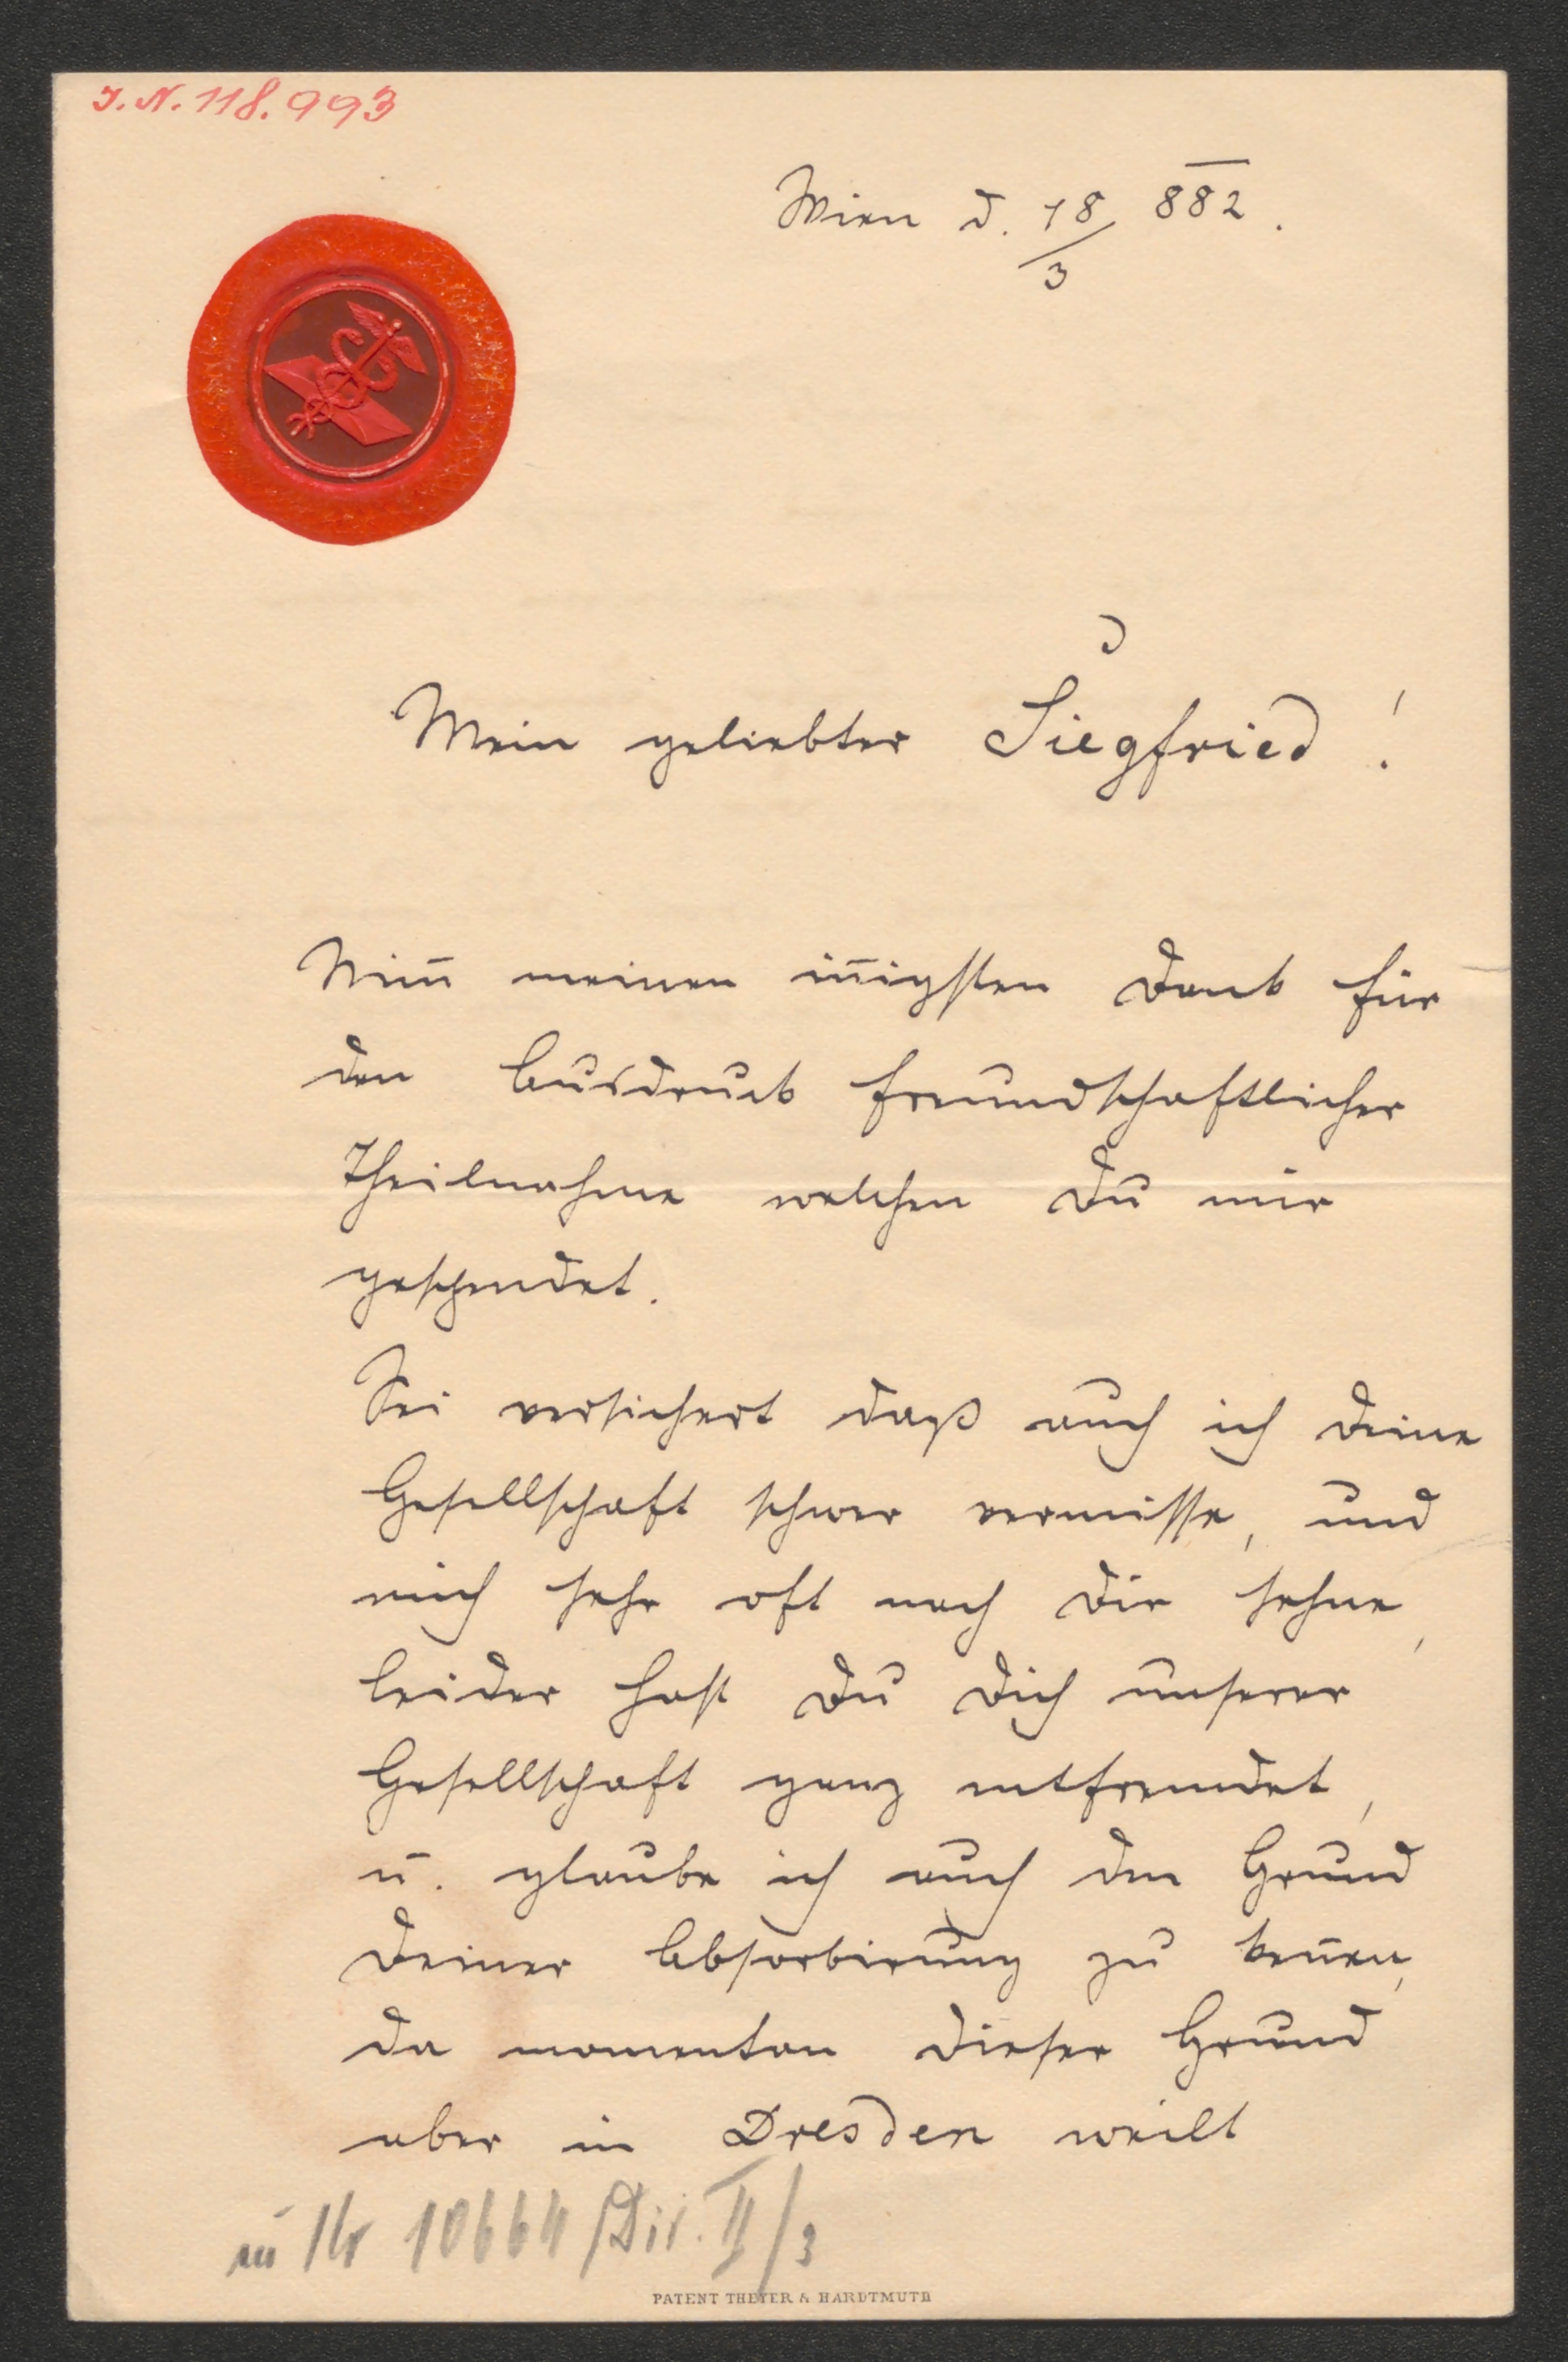 J. N. 118.993
Wien d. 18/3 882.
Mein geliebter Siegfried!
Nim̅ meinen in̅igsten Dank für
den Ausdruck freundschaftlicher
Theilnahme welchen Du mir
gespendet.
Sei versichert daß auch ich Deine
Gesellschaft schwer vermisse, und
mich sehr oft nach Dir sehne,
leider hast Du Dich unserer
Gesellschaft ganz entfremdet,
u. glaube ich auch den Grund
Deiner Absorbirung zu ken̅en,
da momentan dieser Grund
aber in Dresden weilt
Nr 10664/Dir. II/3
PATENT THEYER & HARDTMUTH